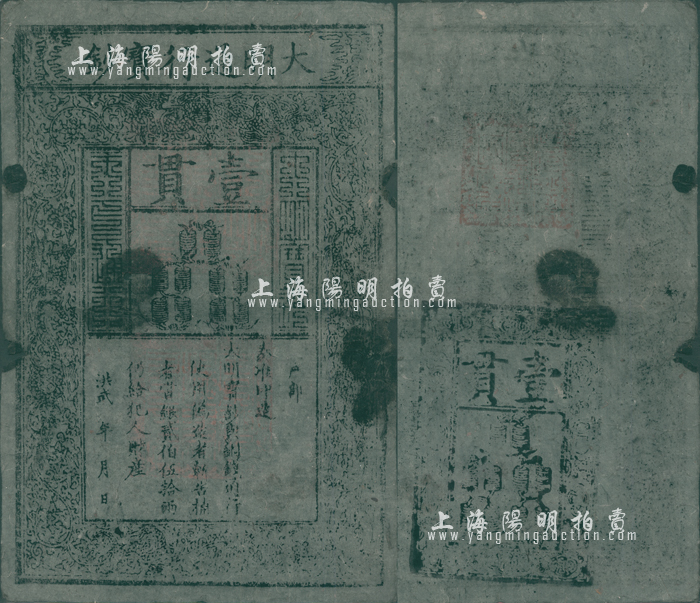 大明通行寶鈔
上海陽明拍賣
www.yangmingauction.com
壹貫
戶部
奏准印造
大明寶鈔與銅錢通行
使用偽造者斬告捕
者賞銀貳伯伍拾兩
仍給犯人財產
洪武 年 月 日
上海陽明拍賣
www.yangmingauction.com
壹貫
上海陽明拍賣
www.yangmingauction.com